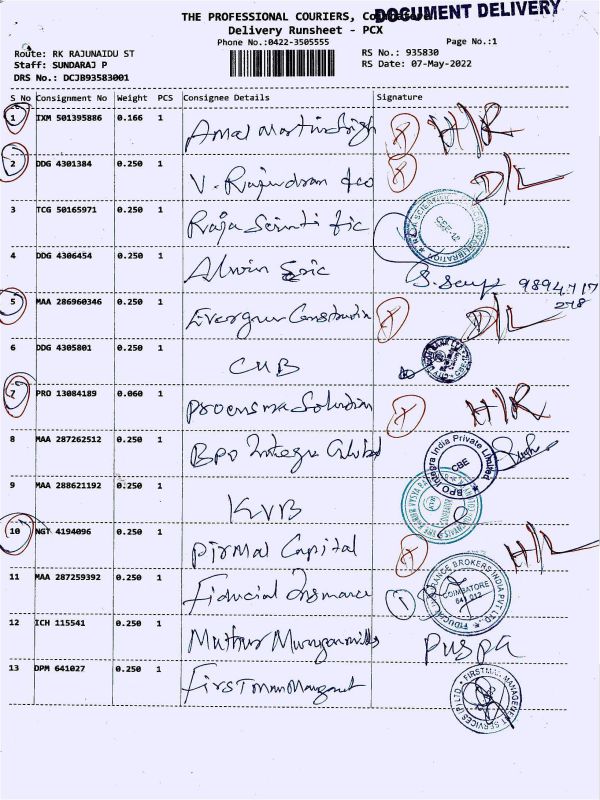 DOCUMENT DELIVERY
THE PROFESSIONAL COURIERS, Coimbatore
Delivery Runsheet - PCX
Phone No.:0422-3505555
Page No.:1
Route: RK RAJUNAIDU ST
RS No.: 935830
Staff: SUNDARAJ P
RS Date: 07-May-2022
DRS No.: DCJB93583001
S No Consignment No Weight PCS Consignee Details Signature
1 IXM 501395886 0.166 1 H/R
2 DDG 4301384 0.250 1 V. Rajendran &co D/L
3 TCG 50165971 0.250 1 Raja
4 DDG 4306454 0.250 1 Alwin 9894717
278
5 MAA 286960346 0.250 1 Evergreen D/L
6 DDG 4305801 0.250 1 CUB
7 PRO 13084189 0.060 1 Solution H/R
8 MAA 287262512 0.250 1 BPO Integra Global BPO Integra India Private Limited CBE
9 MAA 288621192 0.250 1 KVB
10 NGT 4194096 0.250 1 Pirmal Capital H/L
11 MAA 287259392 0.250 1 Fiducial Insurance COIMBATORE 641 012
12 ICH 115541 0.250 1 Puspa
13 DPM 641027 0.250 1